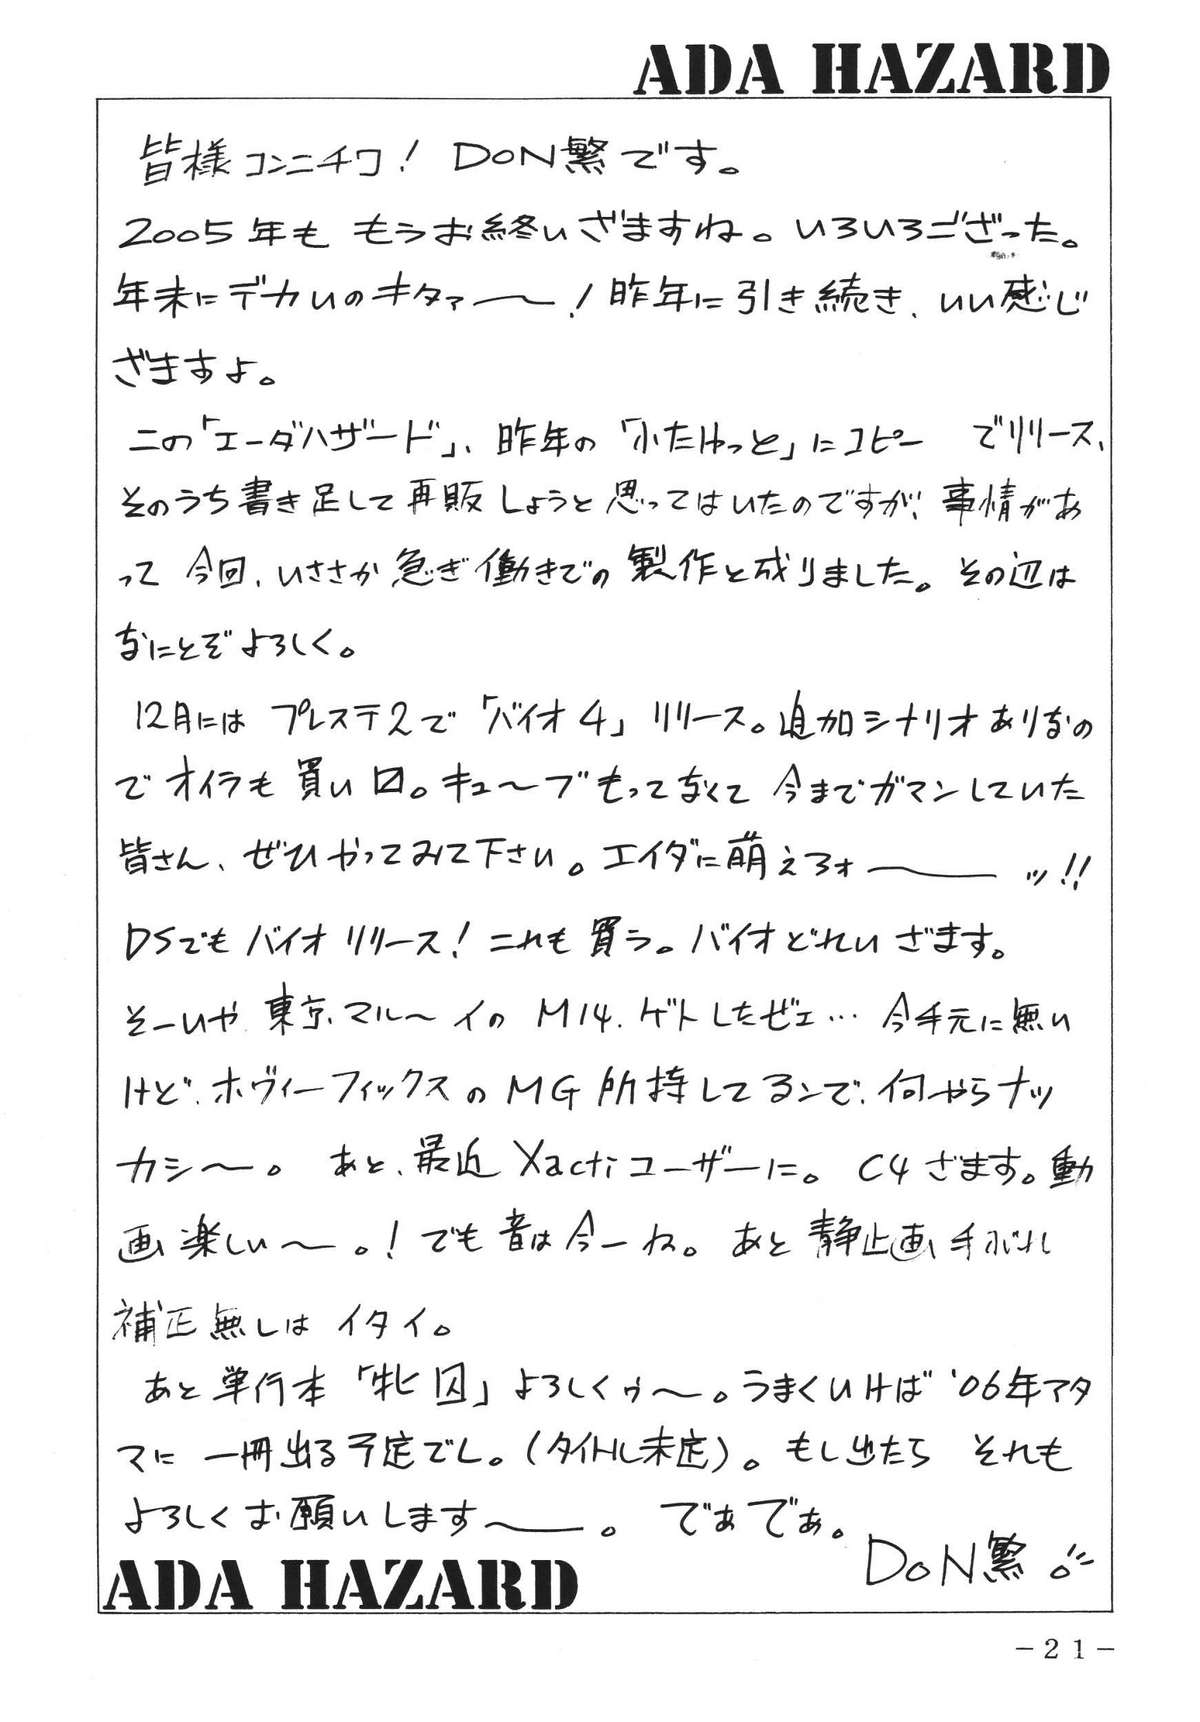 ADA HAZARD
皆様コンニチワ! DON繁です。
2005年も もうお終いざますね。いろいろござった。
年末にデカいのキタァ〜! 昨年に引き続き、いい感じ
ざますよ。
この「エーダハザード」、昨年の「ふたけっと」にコピー でリリース、
そのうち書き足して再販しようと思ってはいたのですが、事情があ
って 今回、いささか急ぎ働きでの製作と成りました。その辺は
なにとぞよろしく。
12月には プレステ2で「バイオ4」リリース。追加シナリオありなの
でオイラも買い口。キュ〜ブもってなくて 今までガマンしていた
皆さん、ぜひやってみて下さい。エイダに萌えろォ〜ッ!!
DSでもバイオリリース! これも買う。バイオどれいざます。
そーいや 東京マル〜イの M14. ゲトしたぜェ… 今手元に無い
けど、ホヴィーフィックスのMG所持してるンで、何やらナッ
カシ〜。 あと、最近Xactiユーザーに。 C4ざます。動
画楽しい〜。! でも音は今一ね。あと静止画手ぶれ
補正無しはイタイ。
あと単行本「牝囚」よろしくゥ〜。うまくいけば'06年アタ
マに 一冊出る予定でし。(タイトル未定)。もし出たら それも
よろしくお願いします〜。 であであ。
DON繁
ADA HAZARD
-21-